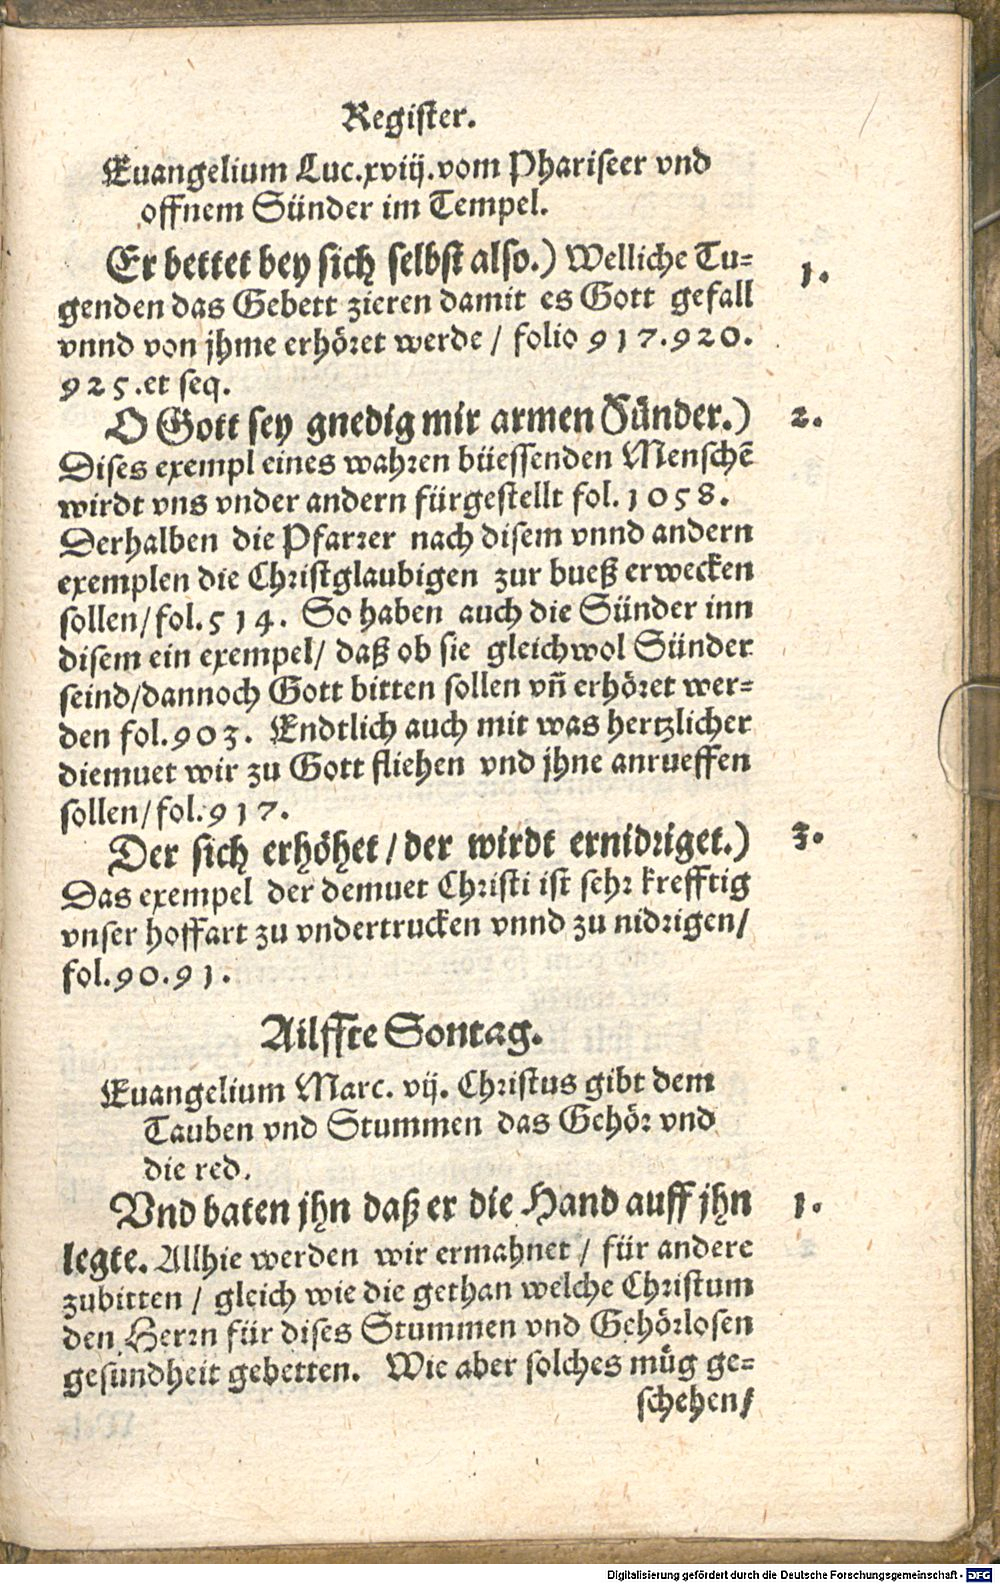 Register.
Euangelium Luc.xviij.vom Phariseer vnd
offnem Sünder im Tempel.
Er bettet bey sich selbst also.) Welliche Tu-
genden das Gebett zieren damit es Gott gefall
vnnd von jhme erhöret werde / folio 917.920.
925.et seq.
1.
O Gott sey gnedig mir armen Sünder.)
Dises exempl eines wahren büessenden Menschē
wirdt vns vnder andern fürgestellt fol.1058.
Derhalben die Pfarrer nach disem vnnd andern
exemplen die Christglaubigen zur bueß erwecken
sollen/fol.514. So haben auch die Sünder inn
disem ein exempel/ daß ob sie gleichwol Sünder
seind/dannoch Gott bitten sollen vñ erhöret wer-
den fol.903. Endtlich auch mit was hertzlicher
diemuet wir zu Gott fliehen vnd jhne anrueffen
sollen/fol.917.
2.
Der sich erhöhet / der wirdt ernidriget.)
Das exempel der demuet Christi ist sehr krefftig
vnser hoffart zu vndertrucken vnnd zu nidrigen/
fol.90.91.
3.
Ailffte Sontag.
Euangelium Marc. vij. Christus gibt dem
Tauben vnd Stummen das Gehör vnd
die red.
Vnd baten jhn daß er die Hand auff jhn
legte. Allhie werden wir ermahnet / für andere
zubitten / gleich wie die gethan welche Christum
den Herrn für dises Stummen vnd Gehörlosen
gesundheit gebetten. Wie aber solches müg ge-
schehen/
1.
Digitalisierung gefördert durch die Deutsche Forschungsgemeinschaft - DFG